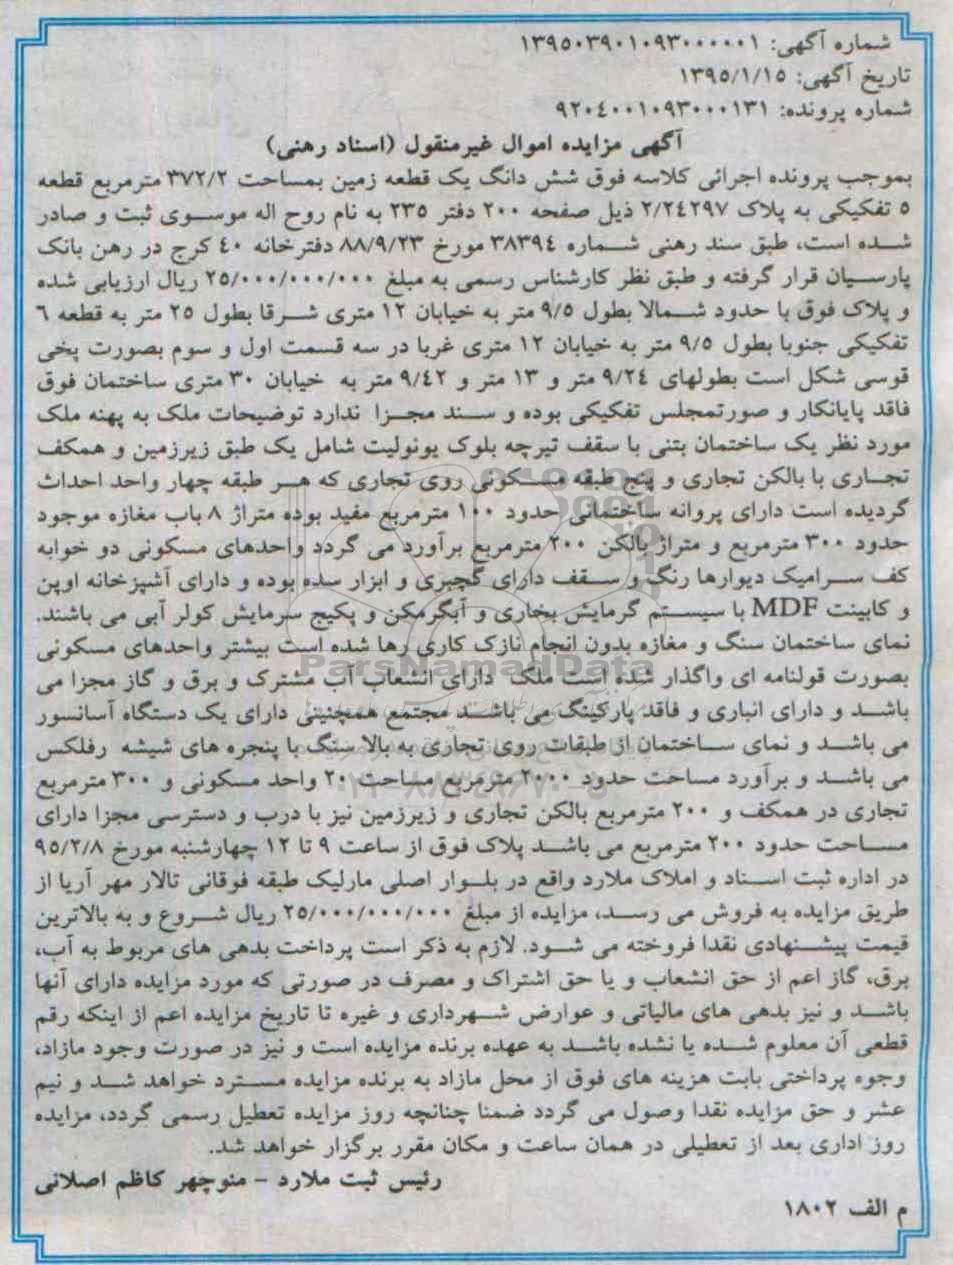 شماره آگهی: ۱۳۹۵۰۳۹۰۱۰۹۳۰۰۰۰۰۱
تاریخ آگهی: ۱۳۹۵/۱/۱۵
شماره پرونده: ۹۲۰۴۰۰۱۰۹۳۰۰۰۱۳۱
آگهی مزایده اموال غیرمنقول (اسناد رهنی)
بموجب پرونده اجرائی کلاسه فوق شش دانگ یک قطعه زمین بمساحت ۳۷۲/۲ مترمربع قطعه
۵ تفکیکی به پلاک ۲/۲۴۲۹۷ ذیل صفحه ۲۰۰ دفتر ۲۳۵ به نام روح اله موسوی ثبت و صادر
شده است، طبق سند رهنی شماره ۳۸۳۹۴ مورخ ۸۸/۹/۲۳ دفترخانه ۴۰ کرج در رهن بانک
پارسیان قرار گرفته و طبق نظر کارشناس رسمی به مبلغ ۲۵/۰۰۰/۰۰۰/۰۰۰ ریال ارزیابی شده
و پلاک فوق با حدود شمالا بطول ۹/۵ متر به خیابان ۱۲ متری شرقا بطول ۲۵ متر به قطعه ۶
تفکیکی جنوبا بطول ۹/۵ متر به خیابان ۱۲ متری غربا در سه قسمت اول و سوم بصورت پخی
قوسی شکل است بطولهای ۹/۲۴ متر و ۱۳ متر و ۹/۴۲ متر به خیابان ۳۰ متری ساختمان فوق
فاقد پایانکار و صورتمجلس تفکیکی بوده و سند مجزا ندارد توضیحات ملک به پهنه ملک
مورد نظر یک ساختمان بتنی با سقف تیرچه بلوک یونولیت شامل یک طبق زیرزمین و همکف
تجاری با بالکن تجاری و پنج طبقه مسکونی روی تجاری که هر طبقه چهار واحد احداث
گردیده است دارای پروانه ساختمانی حدود ۱۰۰ مترمربع مفید بوده متراژ ۸ باب مغازه موجود
حدود ۳۰۰ مترمربع و متراژ بالکن ۲۰۰ مترمربع برآورد می گردد واحدهای مسکونی دو خوابه
کف سرامیک دیوارها رنگ و سقف دارای گچبری و ابزار سده بوده و دارای آشپزخانه اوپن
و کابینت MDF با سیستم گرمایش بخاری و آبگرمکن و پکیج سرمایش کولر آبی می باشند.
نمای ساختمان سنگ و مغازه بدون انجام نازک کاری رها شده است بیشتر واحدهای مسکونی
بصورت قولنامه ای واگذار شده است ملک دارای انشعاب آب مشترک و برق و گاز مجزا می
باشد و دارای انباری و فاقد پارکینگ می باشد مجتمع همچنینی دارای یک دستگاه آسانسور
می باشد و نمای ساختمان از طبقات روی تجاری به بالا سنگ با پنجره های شیشه رفلکس
می باشد و برآورد مساحت حدود ۲۰۰۰ مترمربع مساحت ۲۰ واحد مسکونی و ۳۰۰ مترمربع
تجاری در همکف و ۲۰۰ مترمربع بالکن تجاری و زیرزمین نیز با درب و دسترسی مجزا دارای
مساحت حدود ۲۰۰ مترمربع می باشد پلاک فوق از ساعت ۹ تا ۱۲ چهارشنبه مورخ ۹۵/۲/۸
در اداره ثبت اسناد و املاک ملارد واقع در بلوار اصلی مارلیک طبقه فوقانی تالار مهر آریا از
طریق مزایده به فروش می رسد، مزایده از مبلغ ۲۵/۰۰۰/۰۰۰/۰۰۰ ریال شروع و به بالاترین
قیمت پیشنهادی نقدا فروخته می شود. لازم به ذکر است پرداخت بدهی های مربوط به آب،
برق، گاز اعم از حق انشعاب و یا حق اشتراک و مصرف در صورتی که مورد مزایده دارای آنها
باشد و نیز بدهی های مالیاتی و عوارض شهرداری و غیره تا تاریخ مزایده اعم از اینکه رقم
قطعی آن معلوم شده یا نشده باشد به عهده برنده مزایده است و نیز در صورت وجود مازاد،
وجوه پرداختی بابت هزینه های فوق از محل مازاد به برنده مزایده مسترد خواهد شد و نیم
عشر و حق مزایده نقدا وصول می گردد ضمنا چنانچه روز مزایده تعطیل رسمی گردد، مزایده
روز اداری بعد از تعطیلی در همان ساعت و مکان مقرر برگزار خواهد شد.
رئیس ثبت ملارد - منوچهر کاظم اصلانی
م الف ۱۸۰۲
ParsNamadData